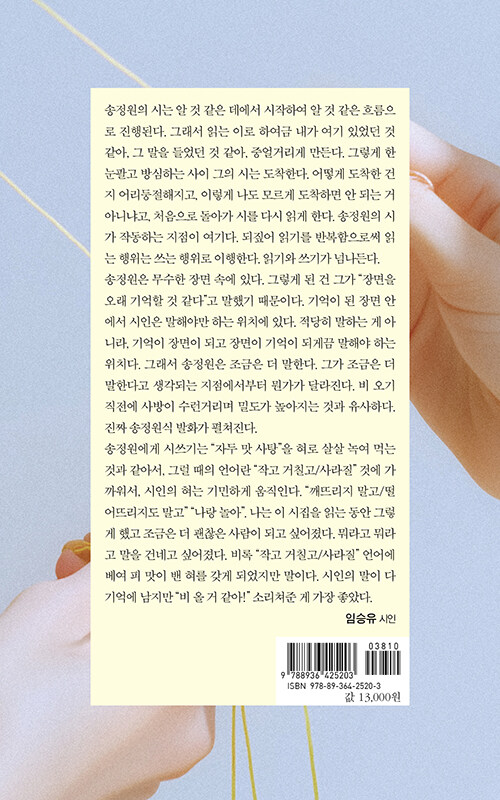 송정원의 시는 알 것 같은 데에서 시작하여 알 것 같은 흐름으
로 진행된다. 그래서 읽는 이로 하여금 내가 여기 있었던 것
같아, 그 말을 들었던 것 같아, 중얼거리게 만든다. 그렇게 한
눈팔고 방심하는 사이 그의 시는 도착한다. 어떻게 도착한 건
지 어리둥절해지고, 이렇게 나도 모르게 도착하면 안 되는 거
아니냐고, 처음으로 돌아가 시를 다시 읽게 한다. 송정원의 시
가 작동하는 지점이 여기다. 되짚어 읽기를 반복함으로써 읽
는 행위는 쓰는 행위로 이행한다. 읽기와 쓰기가 넘나든다.
송정원은 무수한 장면 속에 있다. 그렇게 된 건 그가 “장면을
오래 기억할 것 같다”고 말했기 때문이다. 기억이 된 장면 안
에서 시인은 말해야만 하는 위치에 있다. 적당히 말하는 게 아
니라, 기억이 장면이 되고 장면이 기억이 되게끔 말해야 하는
위치다. 그래서 송정원은 조금은 더 말한다. 그가 조금은 더
말한다고 생각되는 지점에서부터 뭔가가 달라진다. 비 오기
직전에 사방이 수런거리며 밀도가 높아지는 것과 유사하다.
진짜 송정원식 발화가 펼쳐진다.
송정원에게 시쓰기는 “자두 맛 사탕”을 혀로 살살 녹여 먹는
것과 같아서, 그럴 때의 언어란 “작고 거칠고/사라질” 것에 가
까워서, 시인의 혀는 기민하게 움직인다. “깨뜨리지 말고/떨
어뜨리지도 말고” “나랑 놀아”. 나는 이 시집을 읽는 동안 그렇
게 했고 조금은 더 괜찮은 사람이 되고 싶어졌다. 뭐라고 뭐라
고 말을 건네고 싶어졌다. 비록 “작고 거칠고/사라질” 언어에
베여 피 맛이 밴 혀를 갖게 되었지만 말이다. 시인의 말이 다
기억에 남지만 “비 올 거 같아!” 소리쳐준 게 가장 좋았다.
임승유 시인
03810
9 788936 425203
ISBN 978-89-364-2520-3
값 13,000원